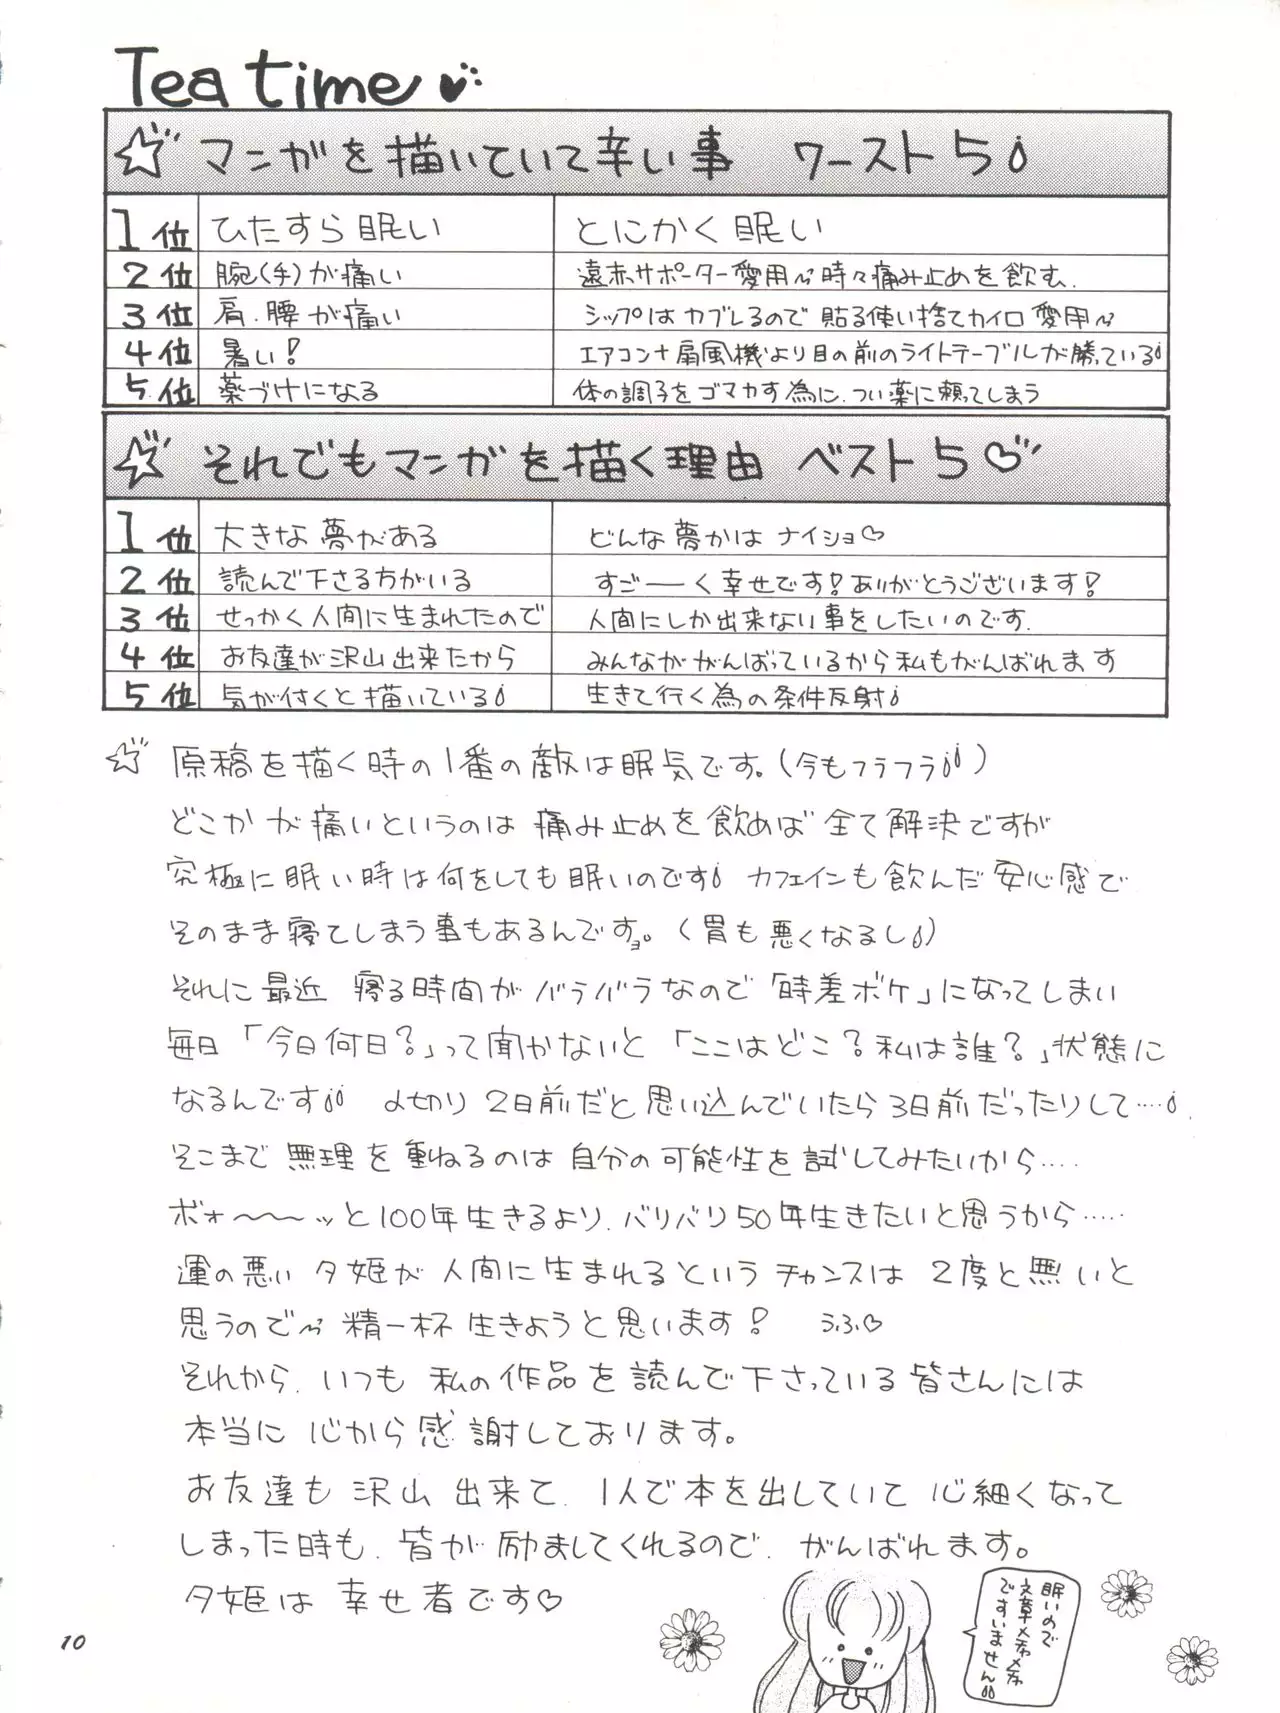 Tea time
マンガを描いていて辛い事 ワースト5
1位 ひたすら眠い とにかく眠い
2位 腕(手)が痛い 遠赤サポーター愛用〜時々痛み止めを飲む.
3位 肩.腰が痛い シップはカブレるので貼る使い捨てカイロ愛用〜
4位 暑い! エアコン+扇風機より目の前のライトテーブルが勝っている
5位 薬づけになる 体の調子をゴマカす為に.つい薬に頼ってしまう
それでもマンガを描く理由 ベスト5♡
1位 大きな夢がある どんな夢かはナイショ♡
2位 読んで下さる方がいる すご――く幸せです!ありがとうございます!
3位 せっかく人間に生まれたので 人間にしか出来ない事をしたいのです.
4位 お友達が沢山出来たから みんながかんばっているから私もがんばれます
5位 気が付くと描いている 生きて行く為の条件反射
☆原稿を描く時の1番の敵は眠気です。(今もフラフラ)
どこかが痛いというのは痛み止めを飲めば全て解決ですが
究極に眠い時は何をしても眠いのです カフェインも飲んだ安心感で
そのまま寝てしまう事もあるんですョ。(胃も悪くなるし)
それに最近 寝る時間がバラバラなので「時差ボケ」になってしまい
毎日「今日何日?」って聞かないと「ここはどこ?私は誰?」状態に
なるんです 〆切り2日前だと思い込んでいたら3日前だったりして……
そこまで無理を重ねるのは自分の可能性を試してみたいから……
ボォ〜〜〜ッと100年生きるより.バリバリ50年生きたいと思うから……
運の悪い夕姫が人間に生まれるというチャンスは2度と無いと
思うので〜精一杯生きようと思います! うふ♡
それから.いつも私の作品を読んで下さっている皆さんには
本当に心から感謝しております。
お友達も沢山出来て.1人で本を出していて心細くなって
しまった時も.皆が励ましてくれるので.がんばれます。
夕姫は幸せ者です♡
眠いので
文章メチャメチャ
ですいません
10